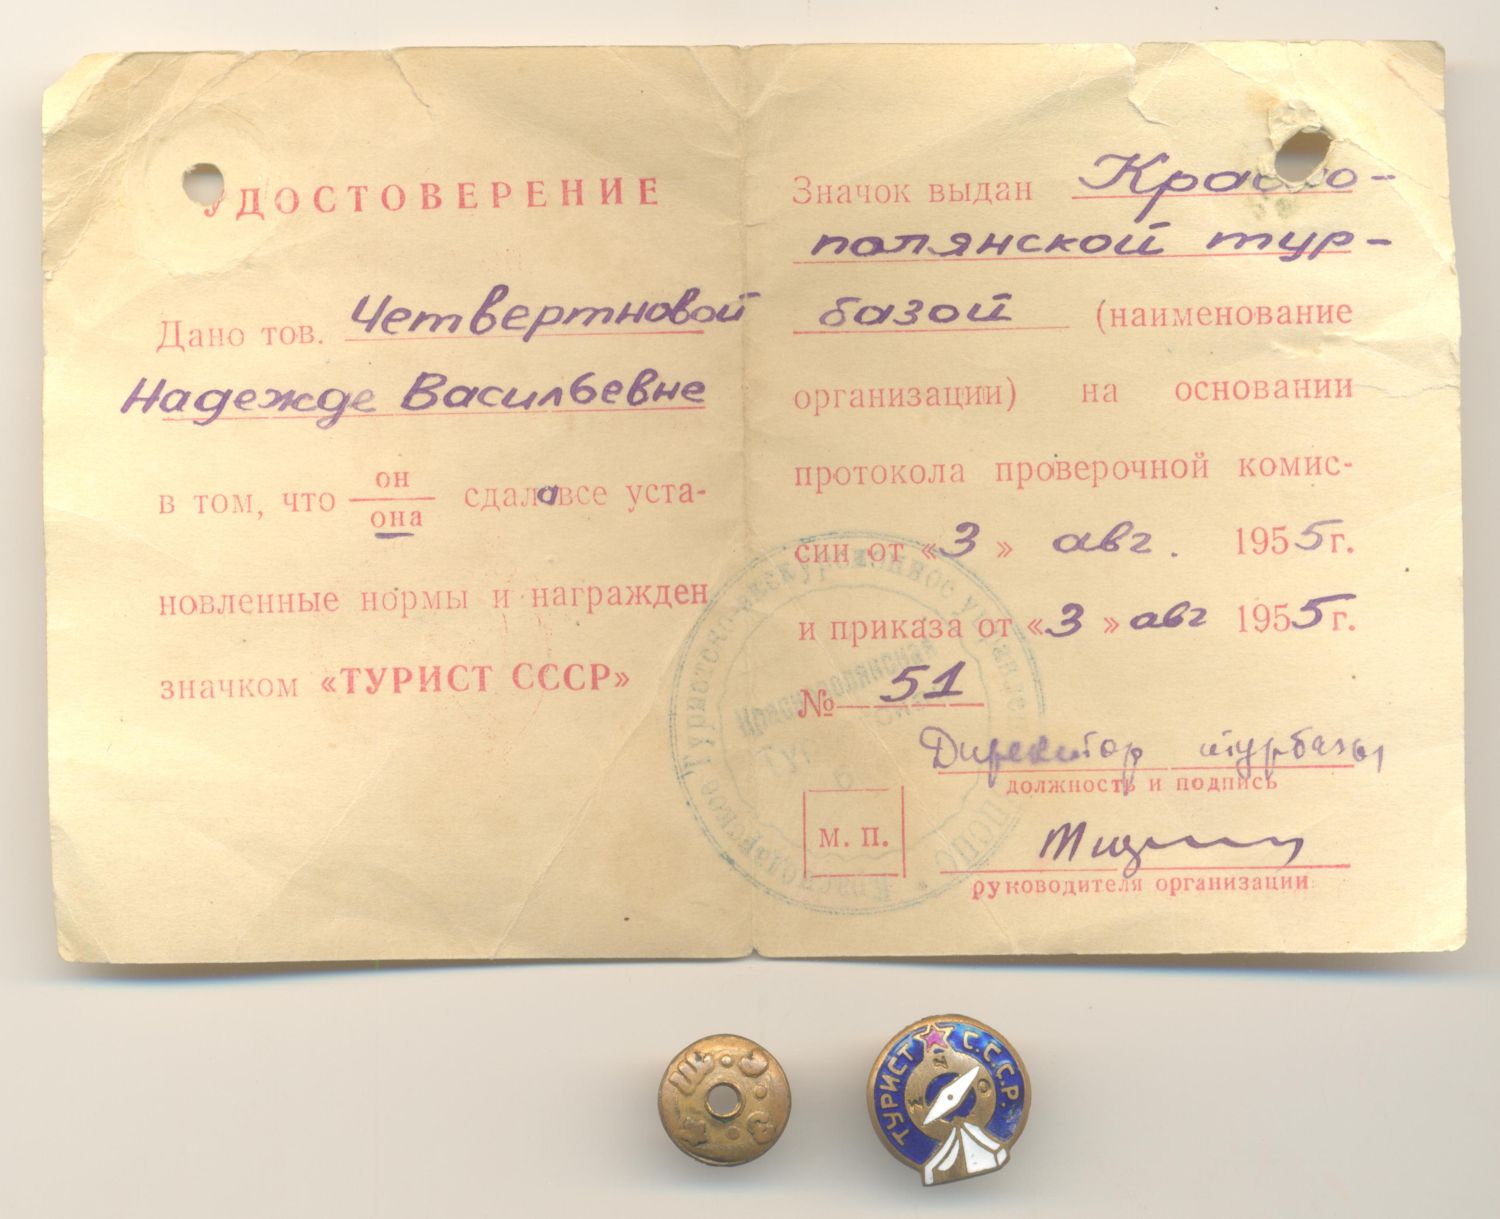 УДОСТОВЕРЕНИЕ
Дано тов. Четвертновой
Надежде Васильевне
в том, что он
она сдала все уста-
новленные нормы и награжден
значком «ТУРИСТ СССР»
Значок выдан Красно-
полянской тур-
базой (наименование
организации) на основании
протокола проверочной комис-
сии от «3» авг. 1955 г.
и приказа от «3» авг 1955 г.
№ 51
Директор турбазы
должность и подпись
руководителя организации
М. П.
Краснодарское Туристско-экскурсионное управление ВЦСПС
Краснополянская
ТУРИСТ С.С.С.Р.